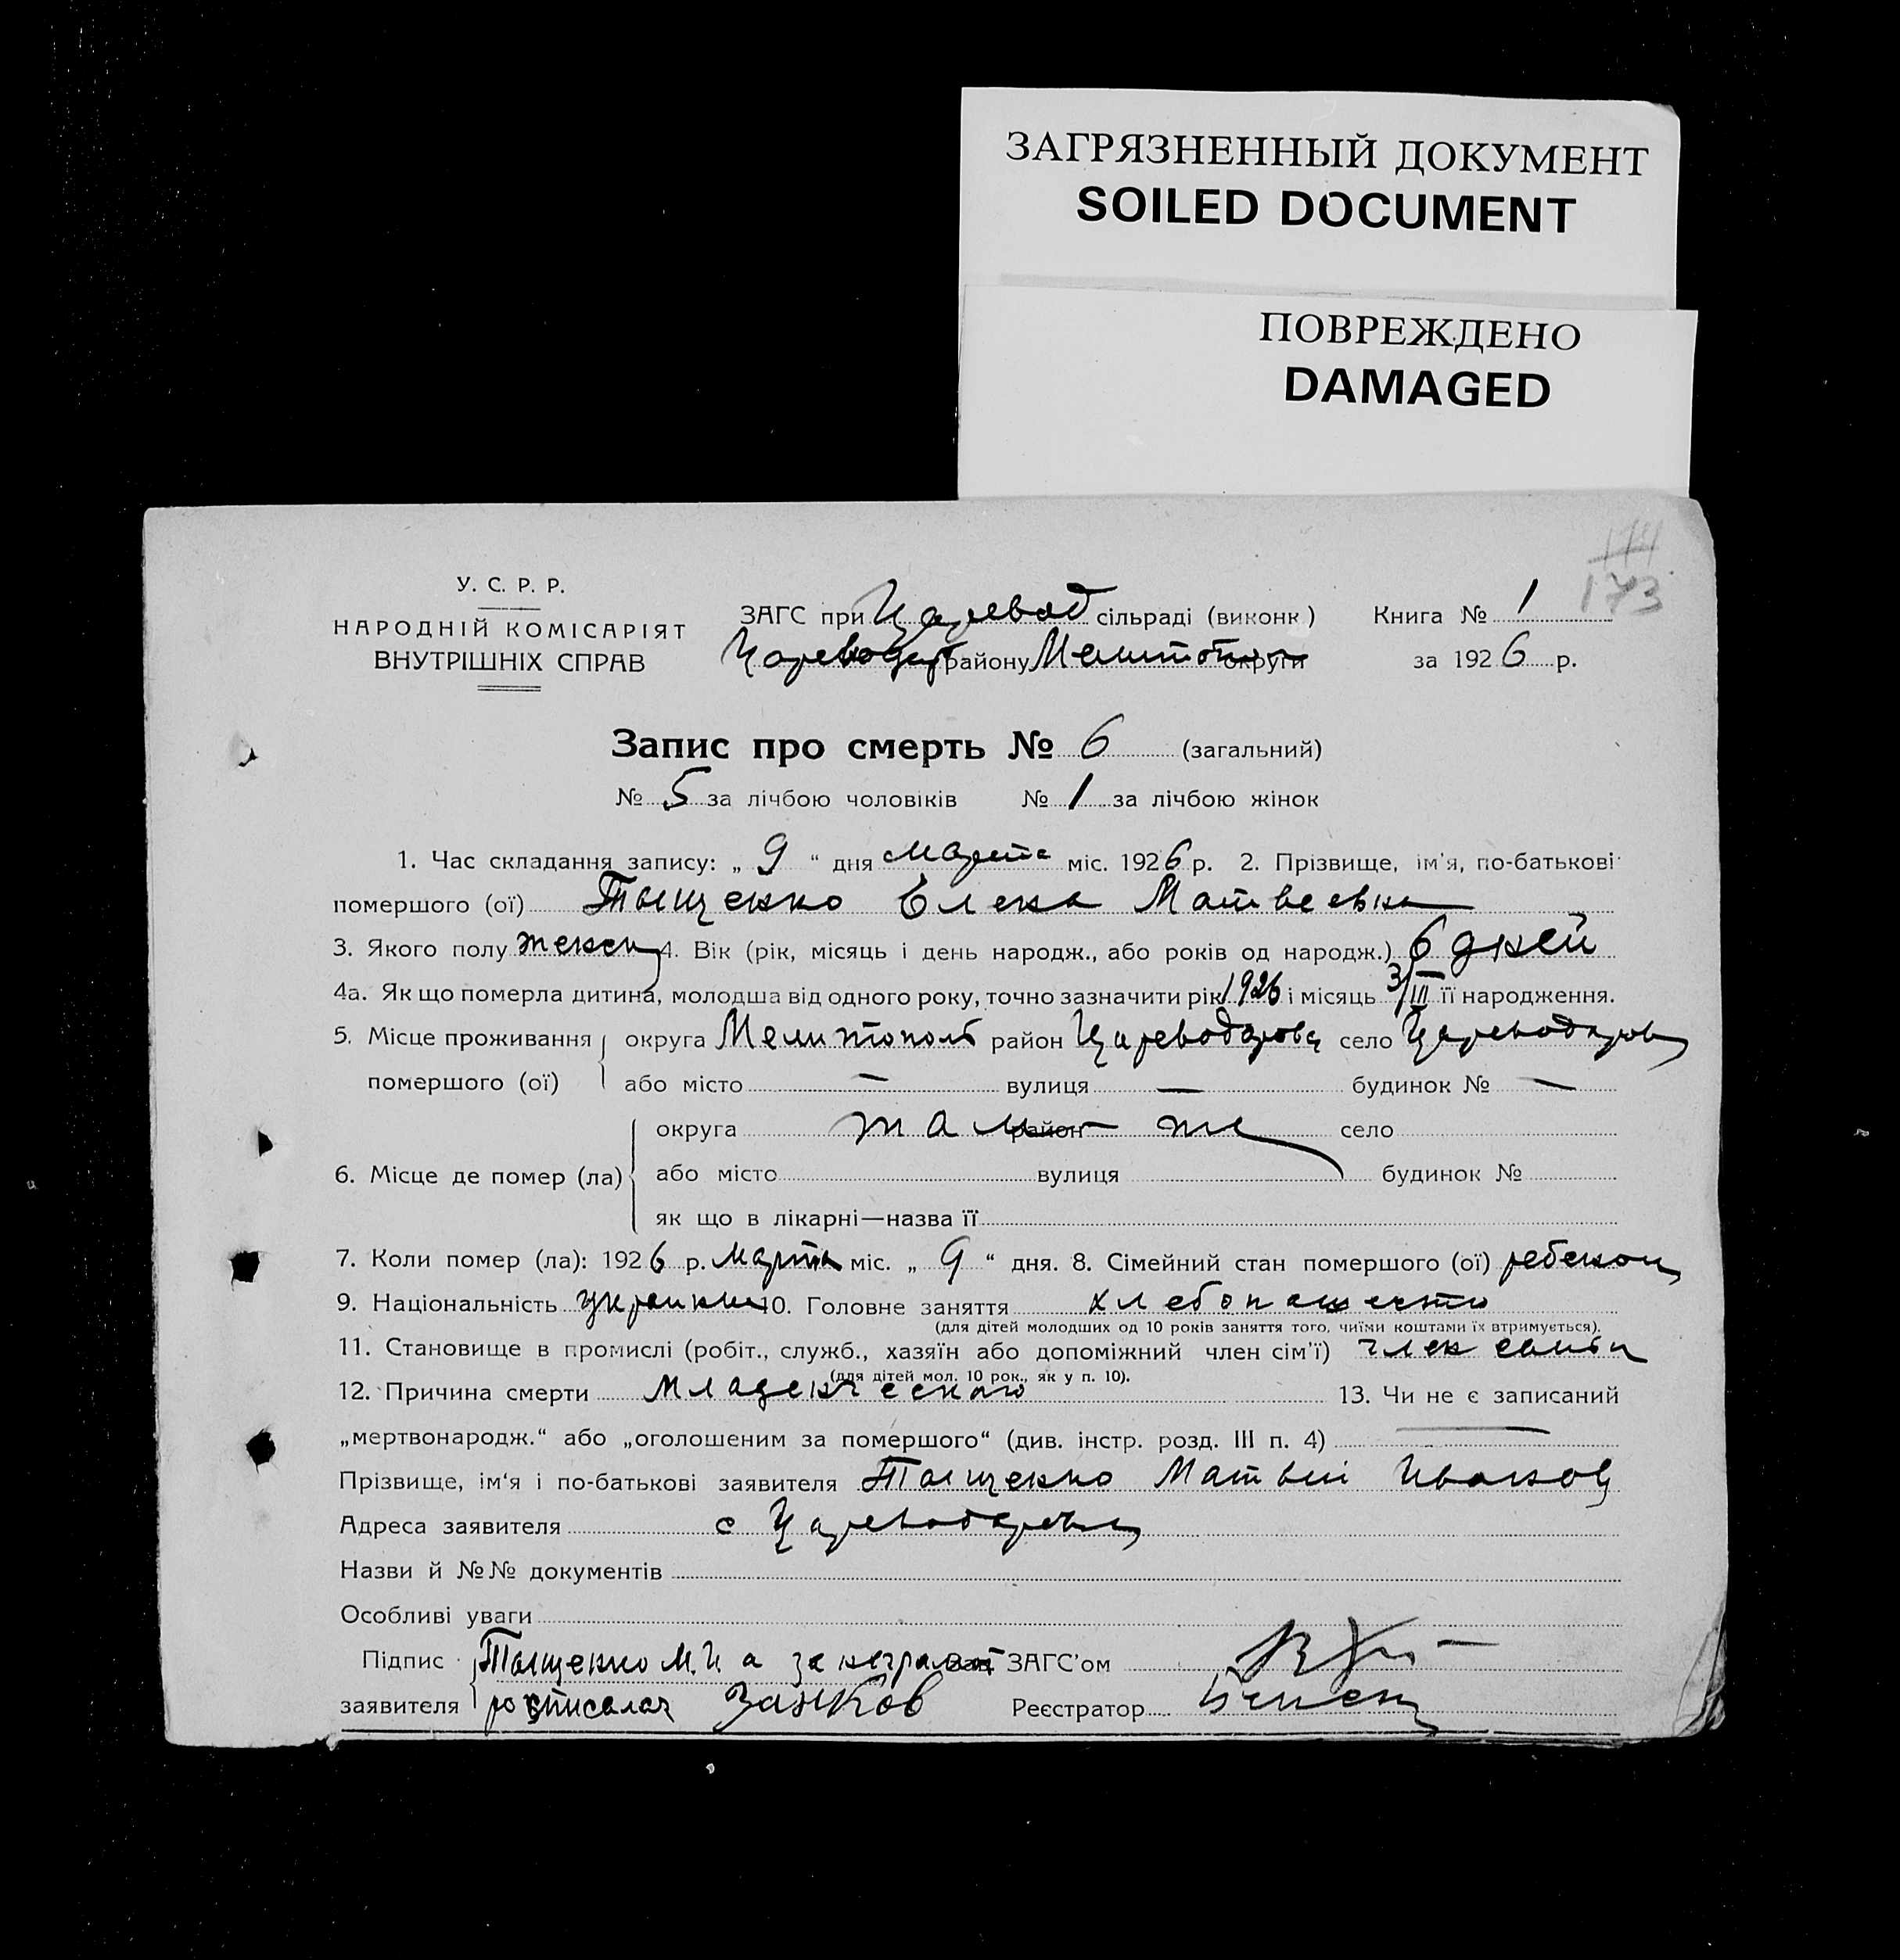 ЗАГРЯЗНЕННЫЙ ДОКУМЕНТ
SOILED DOCUMENT
ПОВРЕЖДЕНО
DAMAGED
174
173
У. С. Р. Р.
НАРОДНІЙ КОМІСАРІЯТ
ВНУТРІШНІХ СПРАВ
ЗАГС при Царевод сільраді (виконк) Книга № 1
Цареводар району Мелитоп округи за 1926 р.
Запис про смерть № 6 (загальний)
№ 5 за лічбою чоловіків № 1 за лічбою жінок
1. Час складання запису: „ 9 “ дня марта міс. 1926 р. 2. Прізвище, ім'я, по-батькові
помершого (ої) Тыщенко Елена Матвеевна
3. Якого полу женск 4. Вік (рік, місяць і день народж., або років од народж.) 6 дней
4а. Як що померла дитина, молодша від одного року, точно зазначити рік 1926 і місяць 3/III її народження.
5. Місце проживання округа Мелитополь район Цареводаровк село Цареводаровк
помершого (ої) або місто — вулиця — будинок № —
округа там район же село
6. Місце де помер (ла) або місто вулиця будинок №
як що в лікарні—назва її
7. Коли помер (ла): 1926 р. марта міс. „ 9 “ дня. 8. Сімейний стан помершого (ої) ребенок
9. Національність украинка 10. Головне заняття хлебопашество
(для дітей молодших од 10 років заняття того, чиїми коштами їх втримується).
11. Становище в промислі (робіт., служб., хазяїн або допоміжний член сім'ї) член семьи
(для дітей мол. 10 рок., як у п. 10).
12. Причина смерти младенческого 13. Чи не є записаний
„мертвонародж.“ або „оголошеним за помершого“ (див. інстр. розд. III п. 4) —
Прізвище, ім'я і по-батькові заявителя Тыщенко Матвей Иванов
Адреса заявителя с Цареводаровк
Назви й №№ документів
Особливі уваги
Підпис Тыщенко М. И а за неграмот Зав. ЗАГС'ом
заявителя росписался Занков Реєстратор